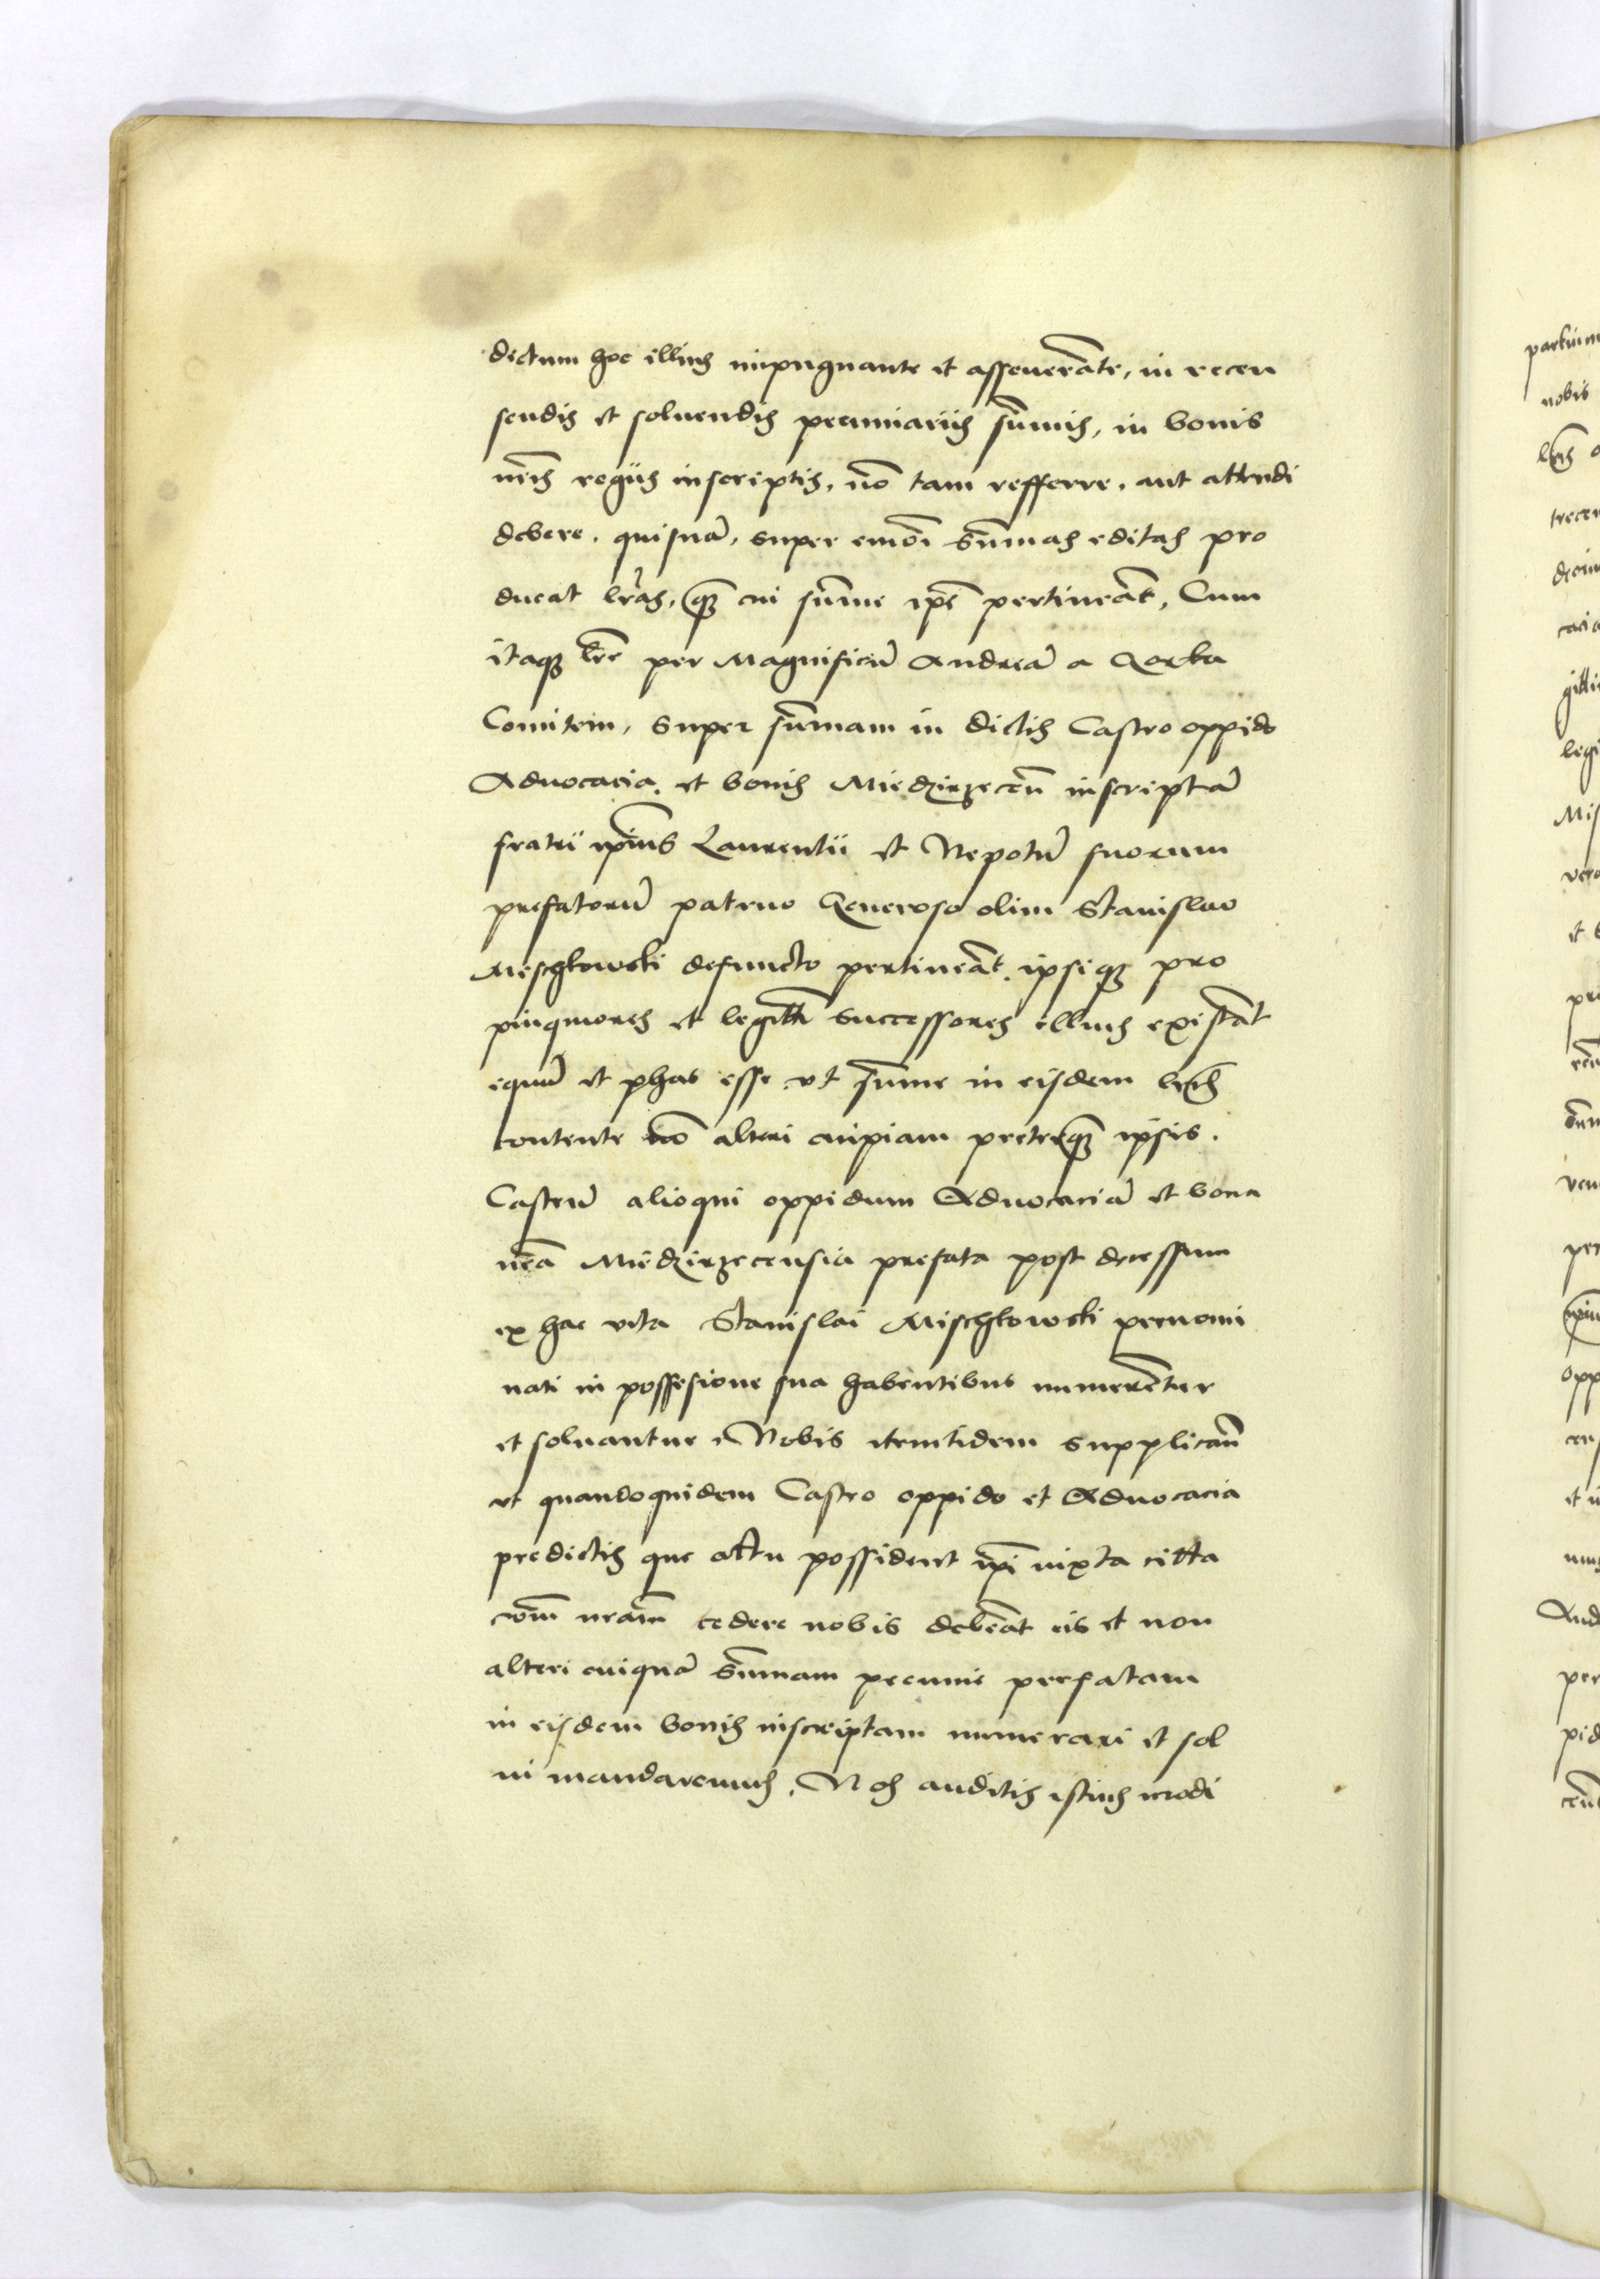 dictum hoc illius impugnante et asseuerāte, in recen
sendis et soluendis pecuniariis sūmis, in bonis
nrīs regiis inscriptis, nō tam refferre, aut attendi
debere, quisnā, super eiusmōi sūmas editas pro
ducat lrās, qȝ cui sūme ipē pertineāt, Cum
itaqȝ lrē per Magnificū Andreā a Gorka
Comitem, super sūmam in dictis Castro oppido
Aduocacia, et bonis Miedzirzeceñ inscriptā
fratri ipīus Laurentii et Nepotū suorum
prefatorū patruo Generoso olim Stanislao
Mischkowski defuncto pertineāt, ipsiqȝ pro
pinquiores et legittī successores illius existāt
equū et phas esse vt sūme in eisdem lrīs
contente nō alteri cuipiam preterqȝ ipsis.
Castrū alioqui oppidum Aduocaciā et bona
nrā Miedzirzecensia prefata post decessum
ex hac vita Stanislai Mischkowski prenomi
nati in possesione sua habentibus numerētur
et soluantur, Nobis itemtidem supplicañ
vt quandoquidem Castro oppido et Aduocacia
predictis que actu possident ipī iuxta citta
cōm nrām cedere nobis debeāt eis et non
alteri cuiquā sūmam pecunie prefatam
in eisdem bonis inscriptam numerari et sol
ui mandaremus, Nos auditis istius modi